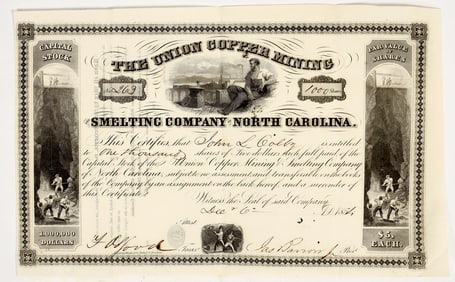 CAPITAL
STOCK
PAR VALUE
OF
SHARES
THE UNION COPPER MINING
No. 263
1000 Shares
SMELTING COMPANY OF NORTH CAROLINA.
This Certifies that John L Colby is entitled
to One thousand shares of Five dollars each full paid of the
Capital Stock of the Union Copper Mining & Smelting Company
of North Carolina, subject to no assessment and transferable on the books
of the Company by an assignment on the back hereof and a surrender of
this Certificate.
Witness the Seal of said Company
Dec 6
1,000,000
DOLLARS
Attest
Treas
Pres
$5.
EACH.